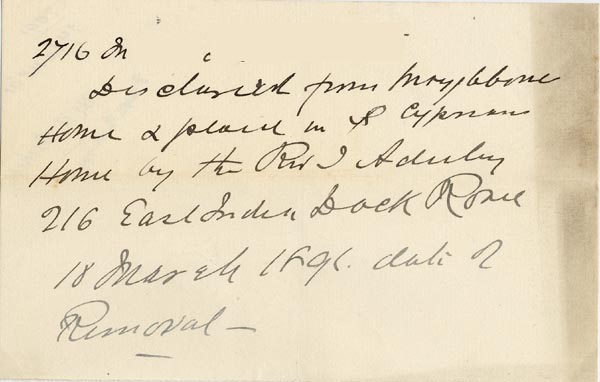 2716 M
Discharged from Marylebone
Home & placed in St Cyprians
Home by the Rev J Adderley
216 East India Dock Road
18 March 1896. date of
Removal —